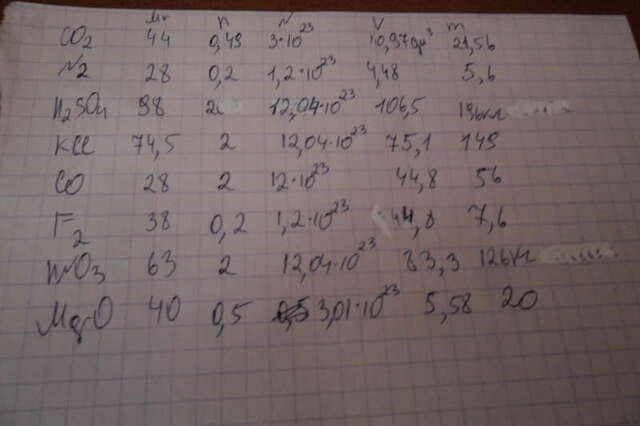 Mr n N V m
CO2 44 0,49 3·10²³ 10,97дм³ 21,56
N2 28 0,2 1,2·10²³ 4,48 5,6
H2SO4 98 12,04·10²³ 106,5 196кг
KCl 74,5 2 12,04·10²³ 75,1 149
CO 28 2 12·10²³ 44,8 56
F2 38 0,2 1,2·10²³ 44,8 7,6
HNO3 63 2 12,04·10²³ 83,3 126кг
MgO 40 0,5 3,01·10²³ 5,58 20